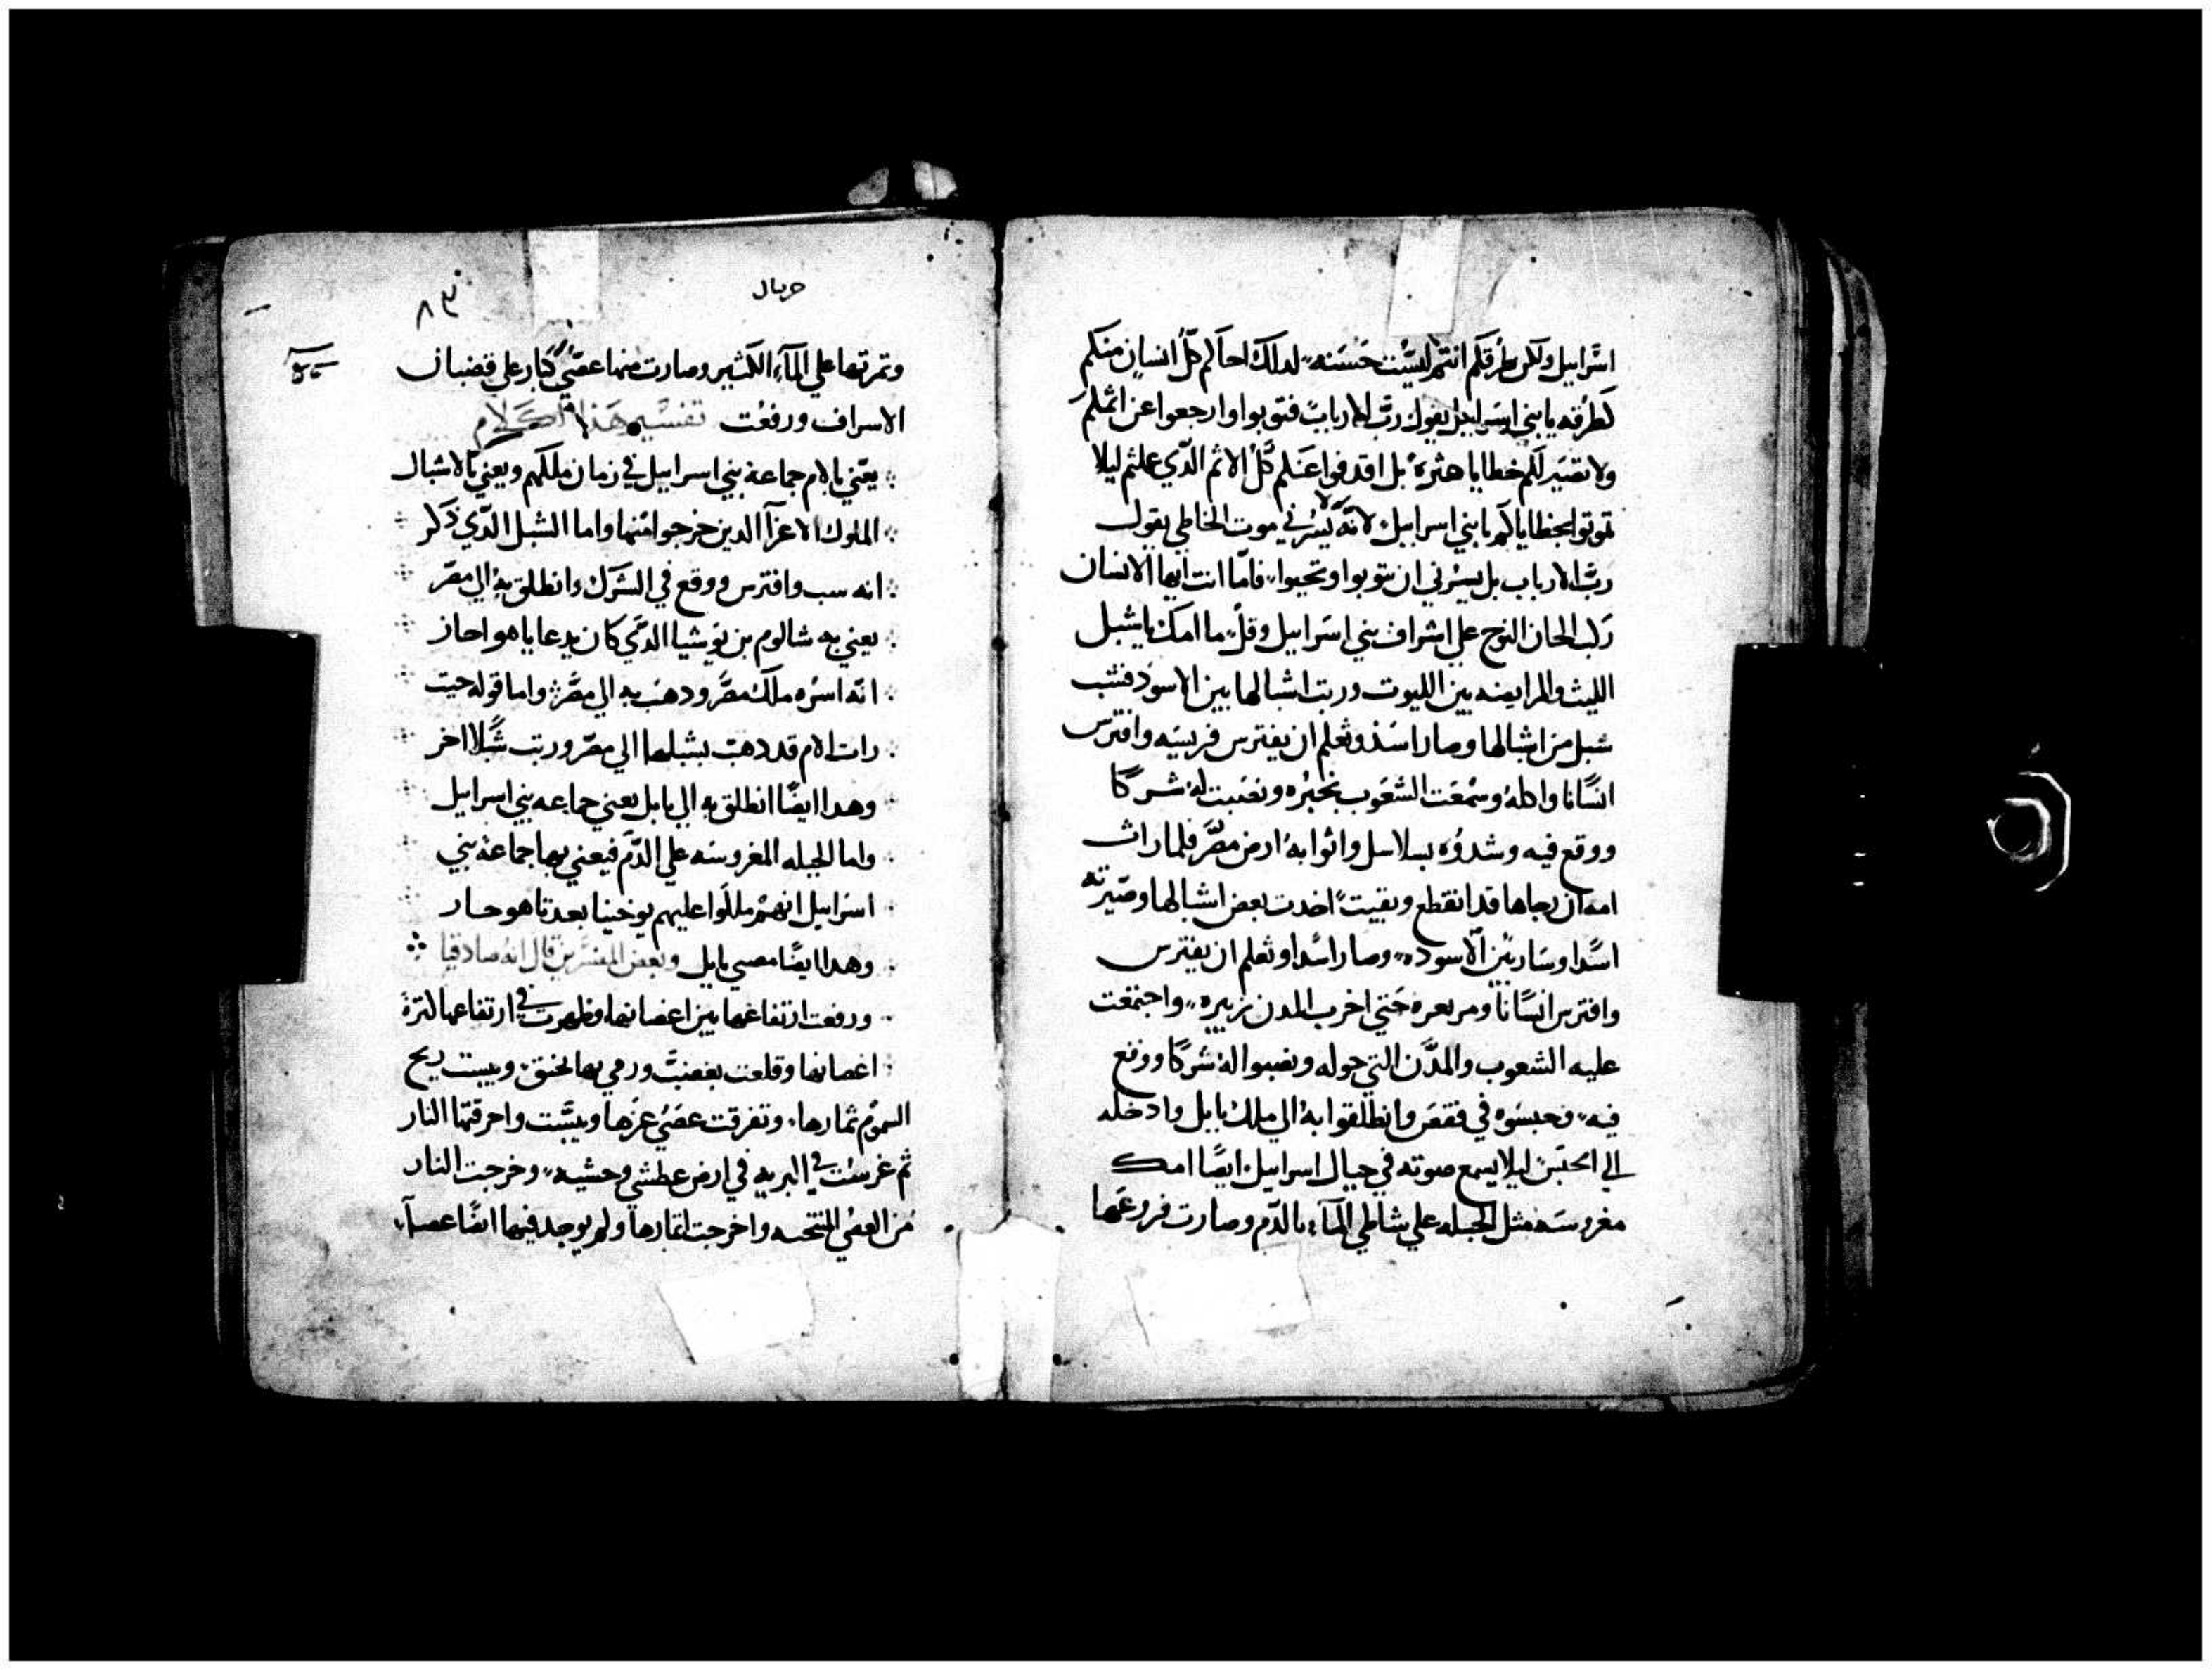 اسراييل ولكن طرقكم انتم ليست حسنه لدلك احاكم كل انسان منكم
كطرقه يابني اسراييل يقول رب الارباب فتوبوا وارجعوا عن اثمكم
ولا تصير لكم خطايا عثره بل اقدفوا عنكم كل الاثم الدي عملتم ليلا
تموتوا بخطاياكم يابني اسراييل لانه لا يسرني موت الخاطي يقول
رب الارباب بل يسرني ان تتوبوا وتحيوا فاما انت ايها الانسان
ركب الحان النوح علي اشراف بني اسراييل وقل ما امك ياشبل
الليث والرابضه بين الليوت وربت اشبالها بين الاسود فشب
شبل من اشبالها وصار اسد وتعلم ان يفترس فريسه وافترس
انسانا واكله وسمعت الشعوب بخبره ونصبت له شركا
ووقع فيه وشدوه بسلاسل واتوا به ارض مصر فلما رات
امه ان رجاها قد انقطع وبقيت اخدت بعض اشبالها وصيرته
اسدا وسار بين الاسوده وصار اسدا وتعلم ان يفترس
وافترس انسانا ومر بعره حتي اخرب المدن بزييره واجتمعت
عليه الشعوب والمدن التي حوله ونصبوا له شركا ووقع
فيه وحبسوه في قفص وانطلقوا به الي ملك بابل وادخله
الي الحبس ليلا يسمع صوته في جبال اسراييل ايضا امك
مغروسه مثل الحبله علي شاطي الماء بالدم وصارت فروعها
حزيال
٨٣
وتمرتها علي الماء الكثير وصارت منها عصي كبار علي قضبان
الاسراف ورفعت تفسير هذا الكلام
يعني بالام جماعة بني اسراييل في زمان ملكهم ويعني بالاشبال
الملوك الاعزآ الدين خرجوا منها واما الشبل الدي ذكر
انه سب وافترس ووقع في الشرك وانطلق به الي مصر
يعني به شالوم بن يوشيا الدي كان يدعا ياهواحاز
انه اسره ملك مصر ودهب به الي مصر واما قوله حيت
رات الام قد دهب بشبلها الي مصر وربت شبلا اخر
وهدا ايضا انطلق به الي بابل يعني جماعه بني اسراييل
واما الحبله المغروسه علي الدم فيعني بها جماعة بني
اسراييل انهم ملكوا عليهم يوخينا بعد تاهوحار
وهدا ايضا مضي بابل وبعض المفسرين قال انه صادقيا
ورفعت ارتفاعها بين اغصانها وظهرت في ارتفاعها لكثرة
اغصانها وقلعت بغضب ورمي بها بحنق ويبست ريح
السموم ثمارها وتفرقت عصي عزها ويبست واحرقتها النار
ثم غرست في البريه في ارض عطشي وحشيه وخرجت النار
من العصي المنتخبه واخرجت اثمارها ولم يوجد فيها ايضا عصا